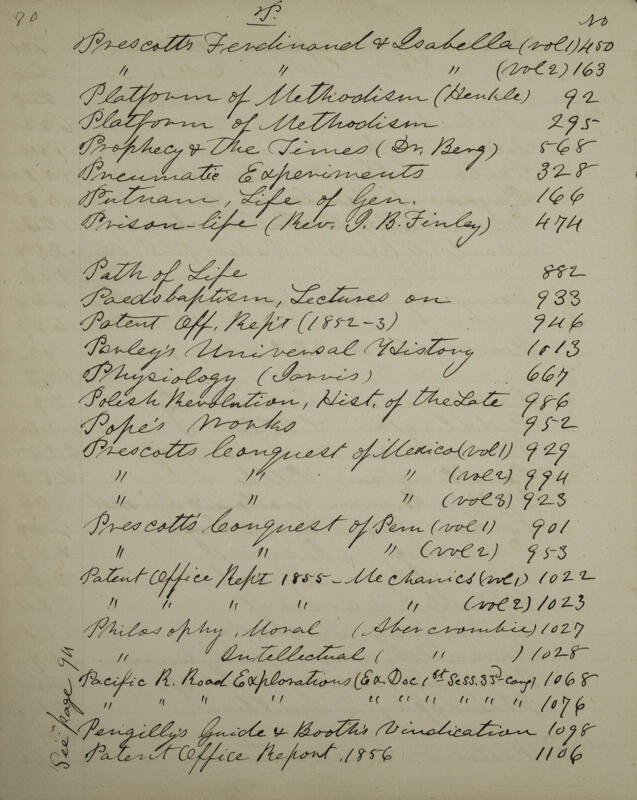 90 P. No
Prescott's Ferdinand & Isabella (vol 1) 450
" " " (vol 2) 163
Platform of Methodism (Henkle) 92
Platform of Methodism 295
Prophecy & the Times (Dr. Berg) 568
Pneumatic Experiments 328
Putnam, Life of Gen. 166
Prison-life (Rev. J. B. Finley) 474
Path of Life 882
Paedobaptism, Lectures on 933
Patent Off. Rep't (1852-3) 946
Parley's Universal History 1013
Physiology (Jarvis) 667
Polish Revolution, Hist. of the Late 986
Pope's Works 952
Prescott's Conquest of Mexico (vol 1) 929
" " " (vol 2) 994
" " " (vol 3) 923
Prescott's Conquest of Peru (vol 1) 901
" " " (vol 2) 953
Patent Office Rept 1855 - Mechanics (vol 1) 1022
" " " " " (vol 2) 1023
Philosophy, Moral (Abercrombie) 1027
" Intellectual ( " ) 1028
Pacific R. Road Explorations (Ex. Doc 1st Sess. 33d cong) 1068
" " " " " " " " " " 1076
Pengilly's Guide & Booth's Vindication 1098
Patent Office Report, 1856 1106
See page 94